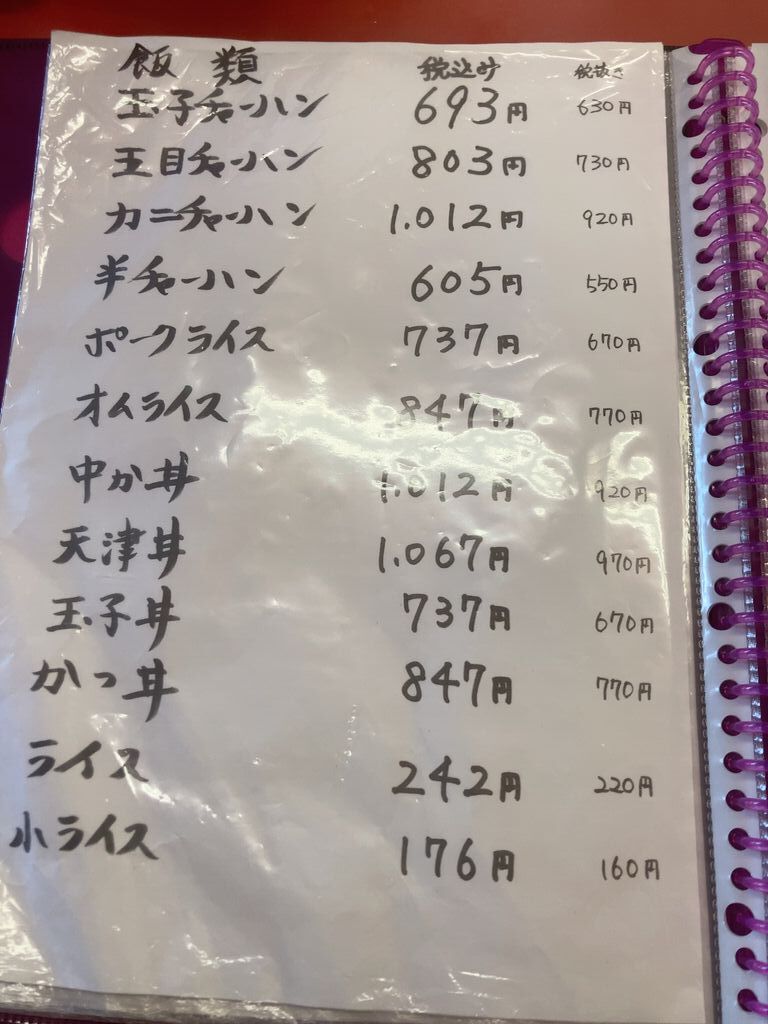 飯類 税込み 税抜き
玉子チャーハン 693円 630円
五目チャーハン 803円 730円
カニチャーハン 1.012円 920円
半チャーハン 605円 550円
ポークライス 737円 670円
オムライス 847円 770円
中か丼 1.012円 920円
天津丼 1.067円 970円
玉子丼 737円 670円
かつ丼 847円 770円
ライス 242円 220円
小ライス 176円 160円